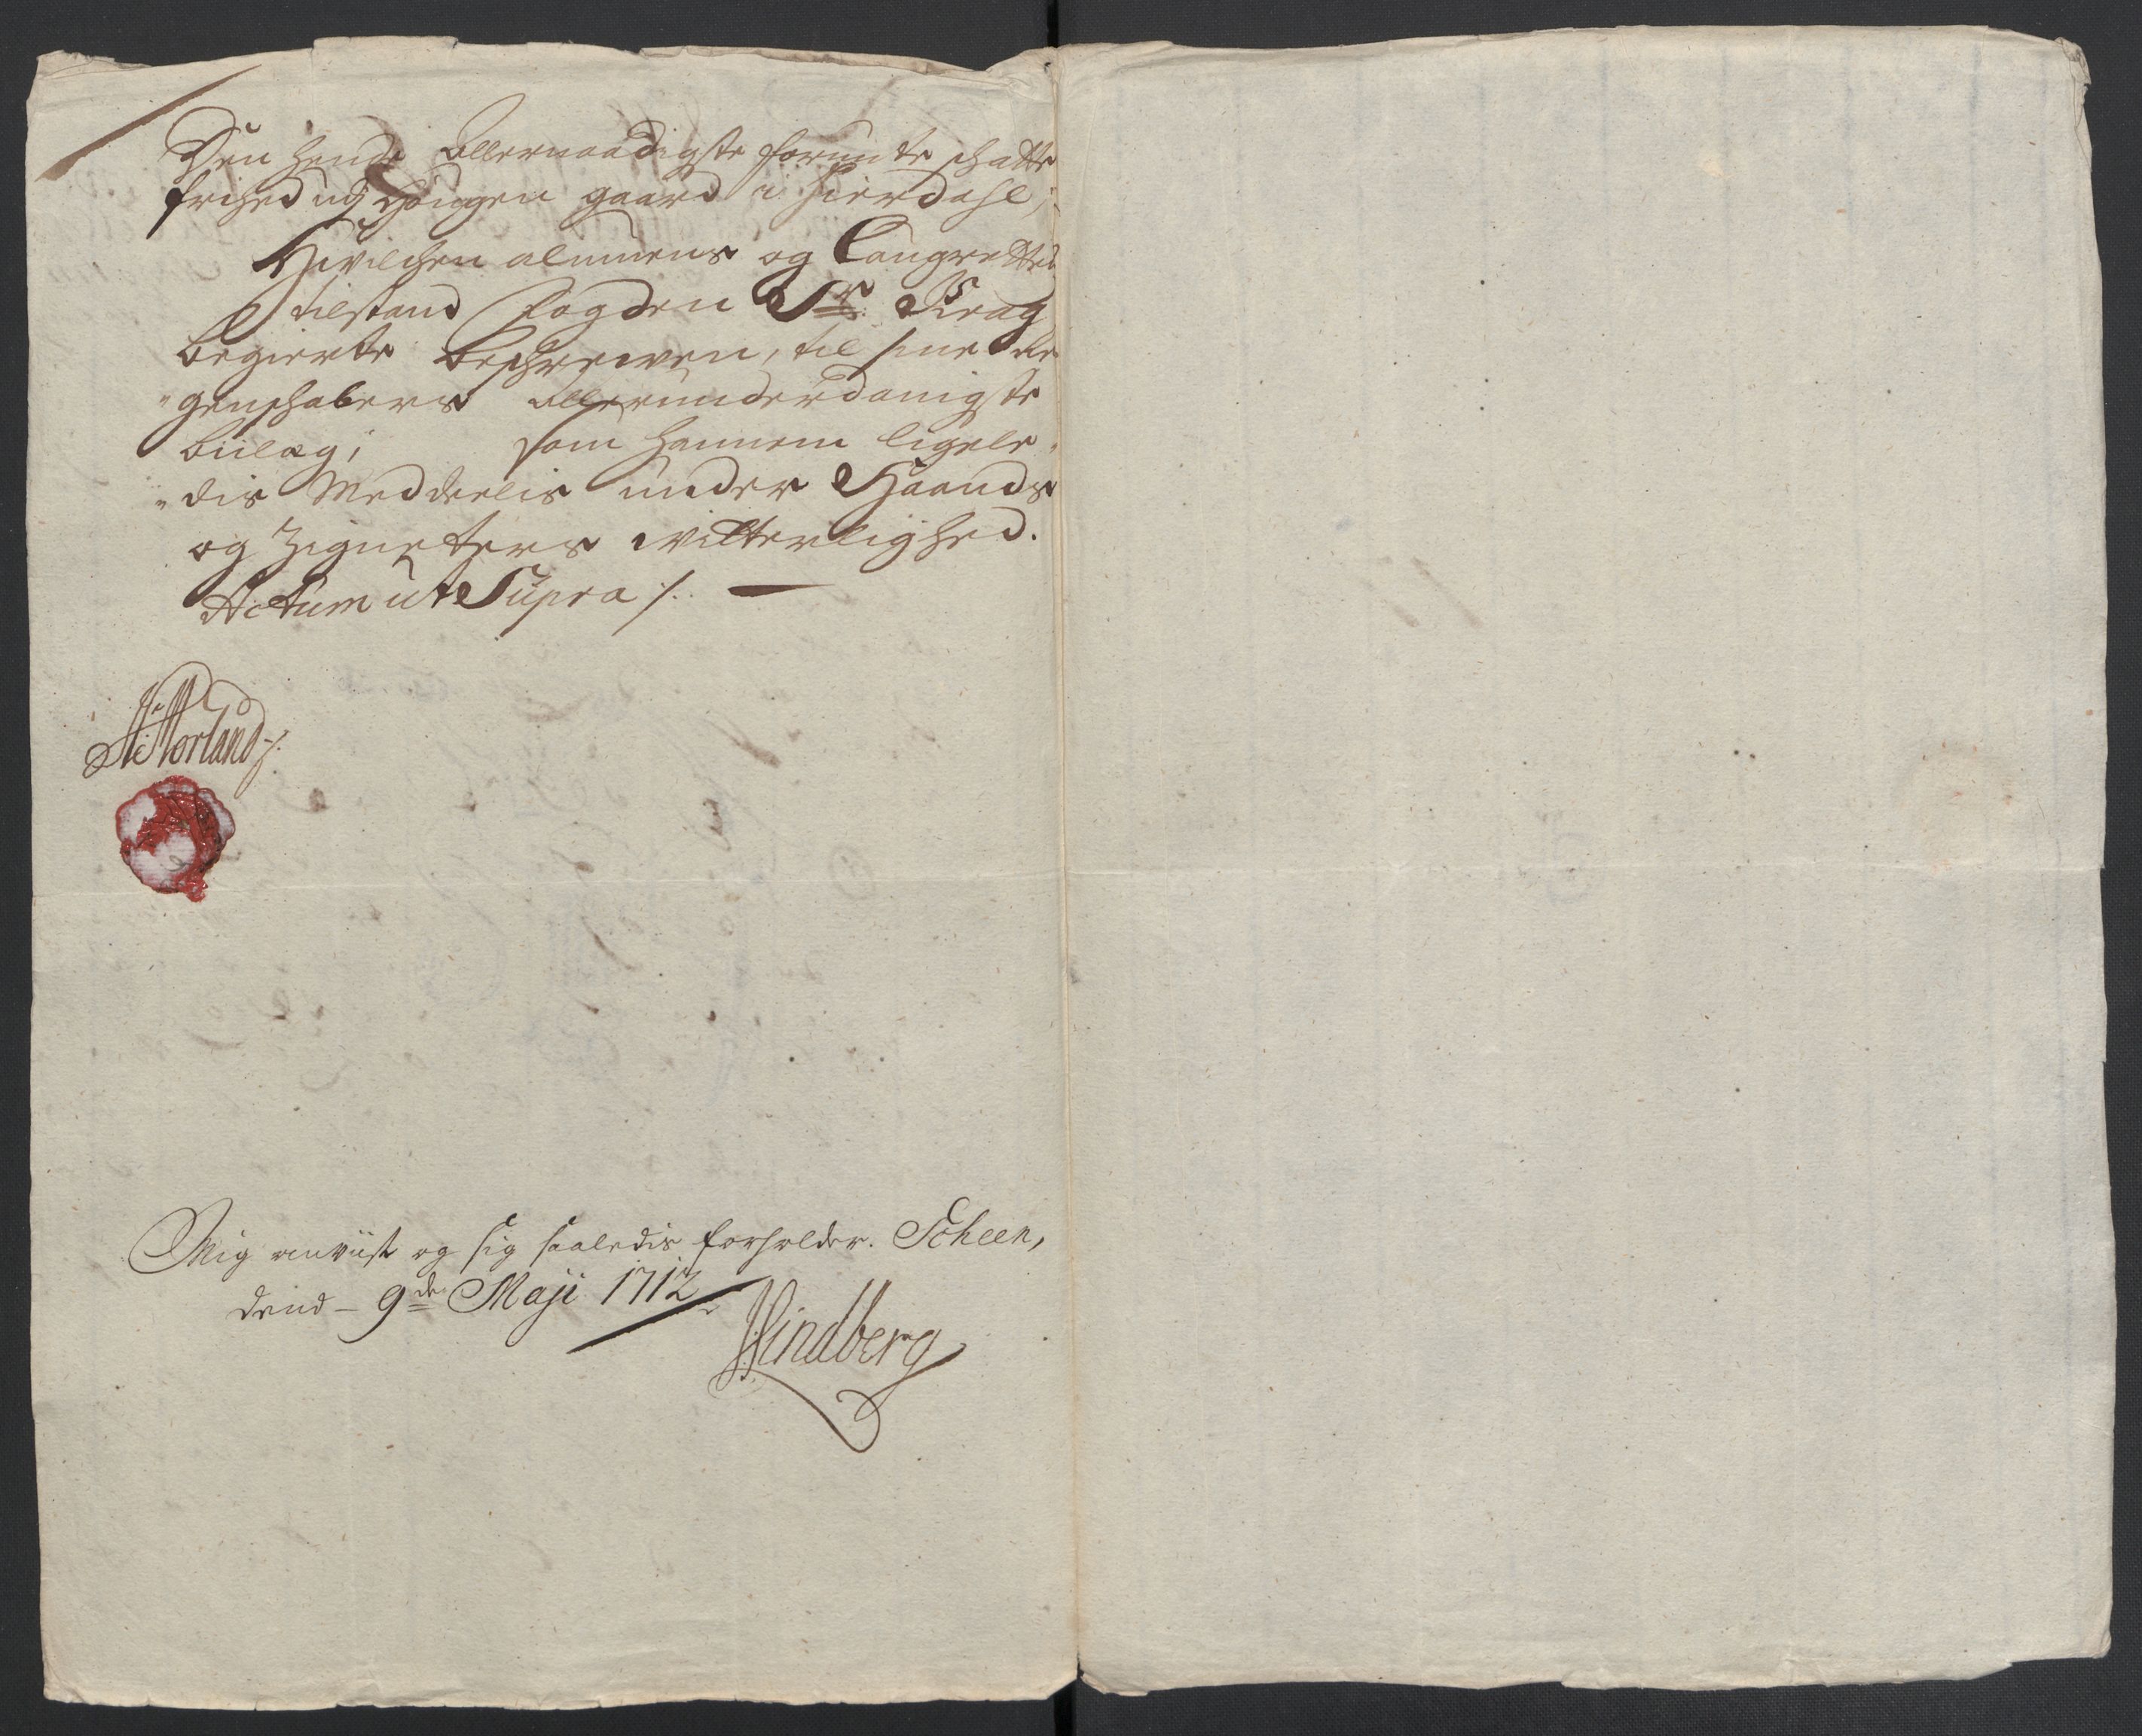 Den hende allernaadigste forunte schatte
frihed ug Haugen gaard i Hierdahl,
Hvilchen almuens og Laugrettes
tilstand fogden Sr. Krag
begierte beschrewen, til sine Re
"genschabers allerunderdanigste
biilag; som hannem ligele"
"dis Meddeelis under Haands
og Zigneters witterlighed.
Actum ut Supra /.
Morland /.
Mig anviist og sig saaledis forholder. Scheen,
dend - 9de Maji 1712
Lindberg